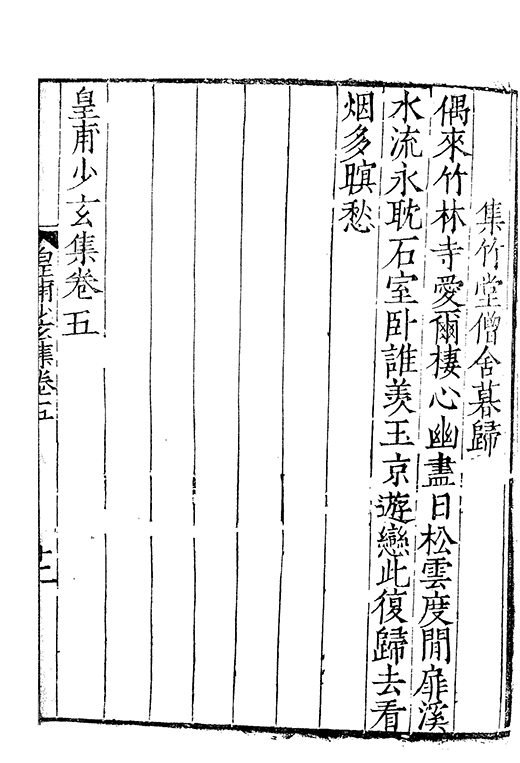 集竹堂僧舍暮歸
偶來竹林寺愛爾棲心幽盡日松雲度閒扉溪
水流永耽石室卧誰羨玉京遊戀此復歸去看
烟多暝愁
皇甫少玄集卷五
皇甫少玄集卷五